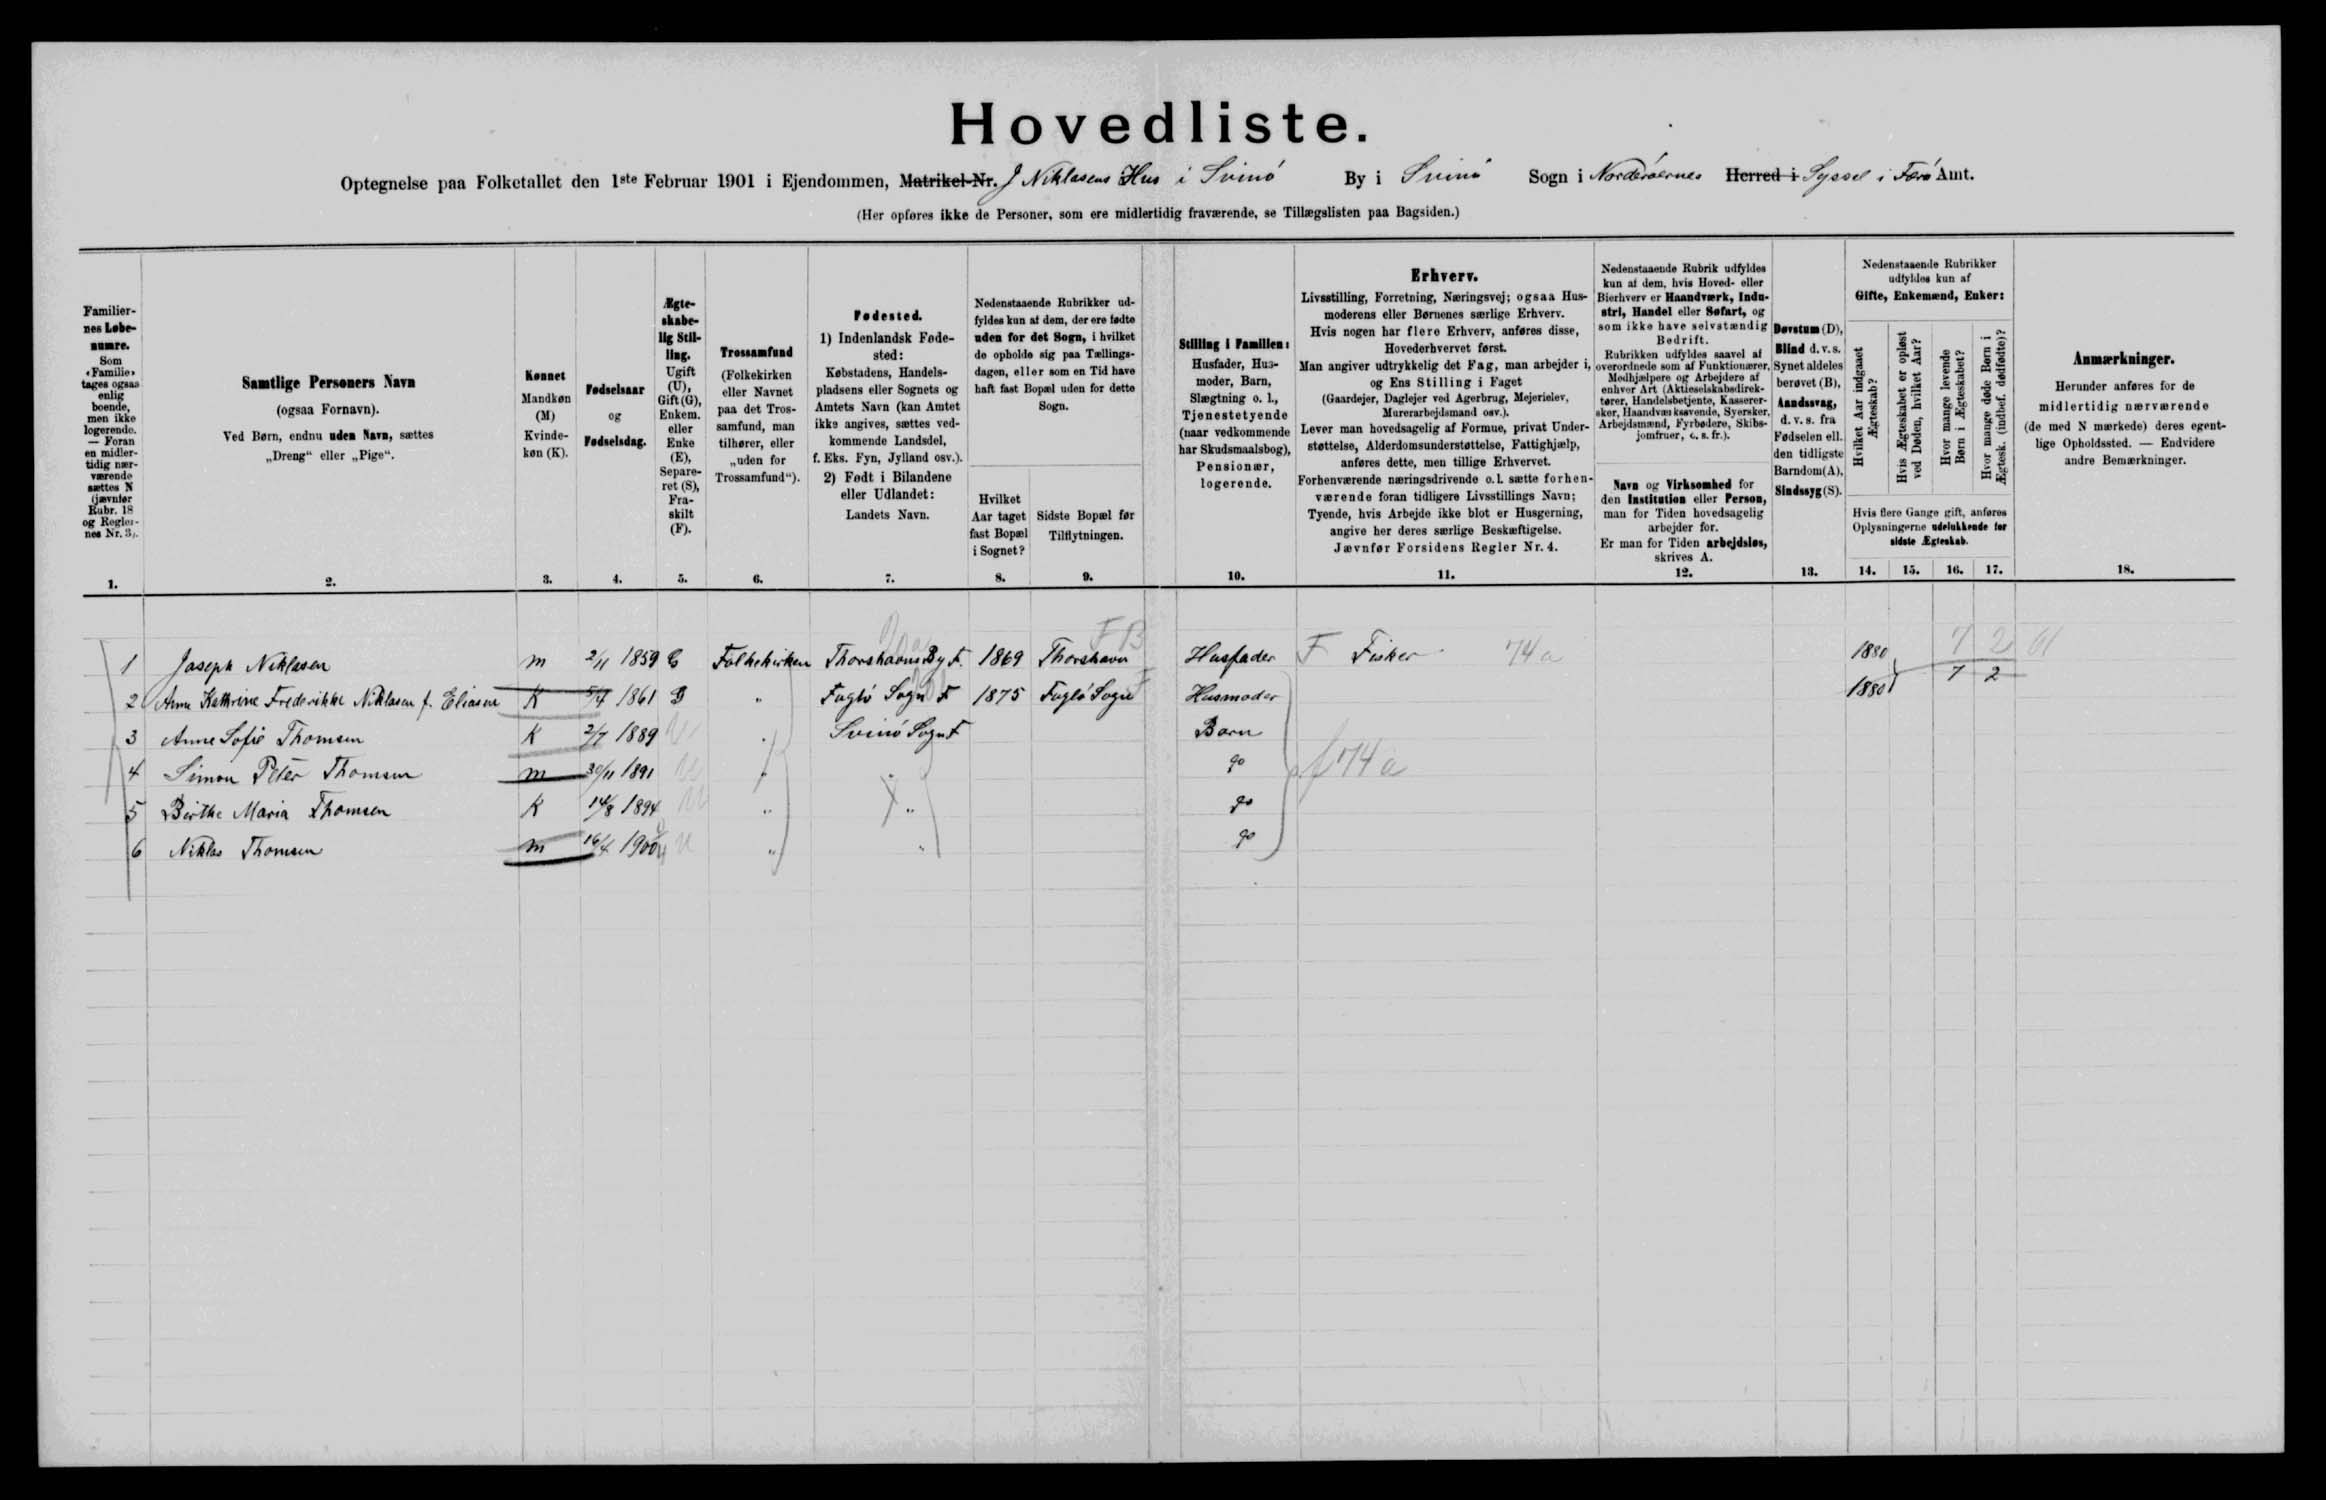 Hovedliste.
Optegnelse paa Folketallet den 1ste Februar 1901 i Ejendommen, Matrikel-Nr. J Niklasens Hus i Svinö By i Svinö Sogn i Norderöernes Herred i Syssel i Færö Amt.
(Her opføres ikke de Personer, som ere midlertidig fraværende, se Tillægslisten paa Bagsiden.)
Familier-
nes Løbe-
numre.
Som
«Familie»
tages ogsaa
enlig
boende,
men ikke
logerende.
— Foran
en midler-
tidig nær-
værende
sættes N
(jævnfør
Rubr. 18
og Regler-
nes Nr. 3).
1.
Samtlige Personers Navn
(ogsaa Fornavn).
Ved Børn, endnu uden Navn, sættes
„Dreng“ eller „Pige“.
2.
Kønnet
Mandkøn
(M)
Kvinde-
køn (K).
3.
Fødselsaar
og
Fødselsdag.
4.
Ægte-
skabe-
lig Stil-
ling.
Ugift
(U),
Gift (G),
Enkem.
eller
Enke
(E),
Separe-
ret (S),
Fra-
skilt
(F).
5.
Trossamfund
(Folkekirken
eller Navnet
paa det Tros-
samfund, man
tilhører, eller
„uden for
Trossamfund“).
6.
Fødested.
1) Indenlandsk Føde-
sted:
Købstadens, Handels-
pladsens eller Sognets og
Amtets Navn (kan Amtet
ikke angives, sættes ved-
kommende Landsdel,
f. Eks. Fyn, Jylland osv.).
2) Født i Bilandene
eller Udlandet:
Landets Navn.
7.
Nedenstaaende Rubrikker ud-
fyldes kun af dem, der ere fødte
uden for det Sogn, i hvilket
de opholde sig paa Tællings-
dagen, eller som en Tid have
haft fast Bopæl uden for dette
Sogn.
Hvilket
Aar taget
fast Bopæl
i Sognet?
8.
Sidste Bopæl før
Tilflytningen.
9.
Stilling i Familien:
Husfader, Hus-
moder, Barn,
Slægtning o. l.,
Tjenestetyende
(naar vedkommende
har Skudsmaalsbog),
Pensionær,
logerende.
10.
Erhverv.
Livsstilling, Forretning, Næringsvej; ogsaa Hus-
moderens eller Børnenes særlige Erhverv.
Hvis nogen har flere Erhverv, anføres disse,
Hovederhvervet først.
Man angiver udtrykkelig det Fag, man arbejder i,
og Ens Stilling i Faget
(Gaardejer, Daglejer ved Agerbrug, Mejerielev,
Murerarbejdsmand osv.).
Lever man hovedsagelig af Formue, privat Under-
støttelse, Alderdomsunderstøttelse, Fattighjælp,
anføres dette, men tillige Erhvervet.
Forhenværende næringsdrivende o.l. sætte forhen-
værende foran tidligere Livsstillings Navn;
Tyende, hvis Arbejde ikke blot er Husgerning,
angive her deres særlige Beskæftigelse.
Jævnfør Forsidens Regler Nr. 4.
11.
Nedenstaaende Rubrik udfyldes
kun af dem, hvis Hoved- eller
Bierhverv er Haandværk, Indu-
stri, Handel eller Søfart, og
som ikke have selvstændig
Bedrift.
Rubrikken udfyldes saavel af
overordnede som af Funktionærer,
Medhjælpere og Arbejdere af
enhver Art (Aktieselskabsdirek-
tører, Handelsbetjente, Kasserer-
sker, Haandværkssvende, Syersker,
Arbejdsmænd, Fyrbødere, Skibs-
jomfruer, o. s. fr.).
Navn og Virksomhed for
den Institution eller Person,
man for Tiden hovedsagelig
arbejder for.
Er man for Tiden arbejdsløs,
skrives A.
12.
Døvstum (D),
Blind d. v. s.
Synet aldeles
berøvet (B),
Aandssvag,
d. v. s. fra
Fødselen ell.
den tidligste
Barndom (A),
Sindssyg (S).
13.
Nedenstaaende Rubrikker
udfyldes kun af
Gifte, Enkemænd, Enker:
Hvilket Aar indgaaet
Ægteskab?
Hvis Ægteskabet er opløst
ved Døden, hvilket Aar?
Hvor mange levende
Børn i Ægteskabet?
Hvor mange døde Børn i
Ægtesk. (indbef. dødfødte)?
Hvis flere Gange gift, anføres
Oplysningerne udelukkende for
sidste Ægteskab.
14. 15. 16. 17.
Anmærkninger.
Herunder anføres for de
midlertidig nærværende
(de med N mærkede) deres egent-
lige Opholdssted. — Endvidere
andre Bemærkninger.
18.
FB 7 2
1 Joseph Niklasen m 2/11 1859 G Folkekirken Thorshavns By F. 1869 Thorshavn Husfader F Fisker 74a 1880
2 Anna Kathrine Frederikke Niklasen f. Eliasen K 5/7 1861 G " Fuglö Sogn F 1875 Fuglö Sogn Husmoder 1880 7 2
3 Anne Sofie Thomsen K 2/7 1889 U " Svinö Sogn F Barn
4 Simon Peter Thomsen m 30/11 1891 U " " go f 74a
5 Birthe Maria Thomsen K 14/8 1894 U " " go
6 Niklas Thomsen m 16/4 1900 U " " go